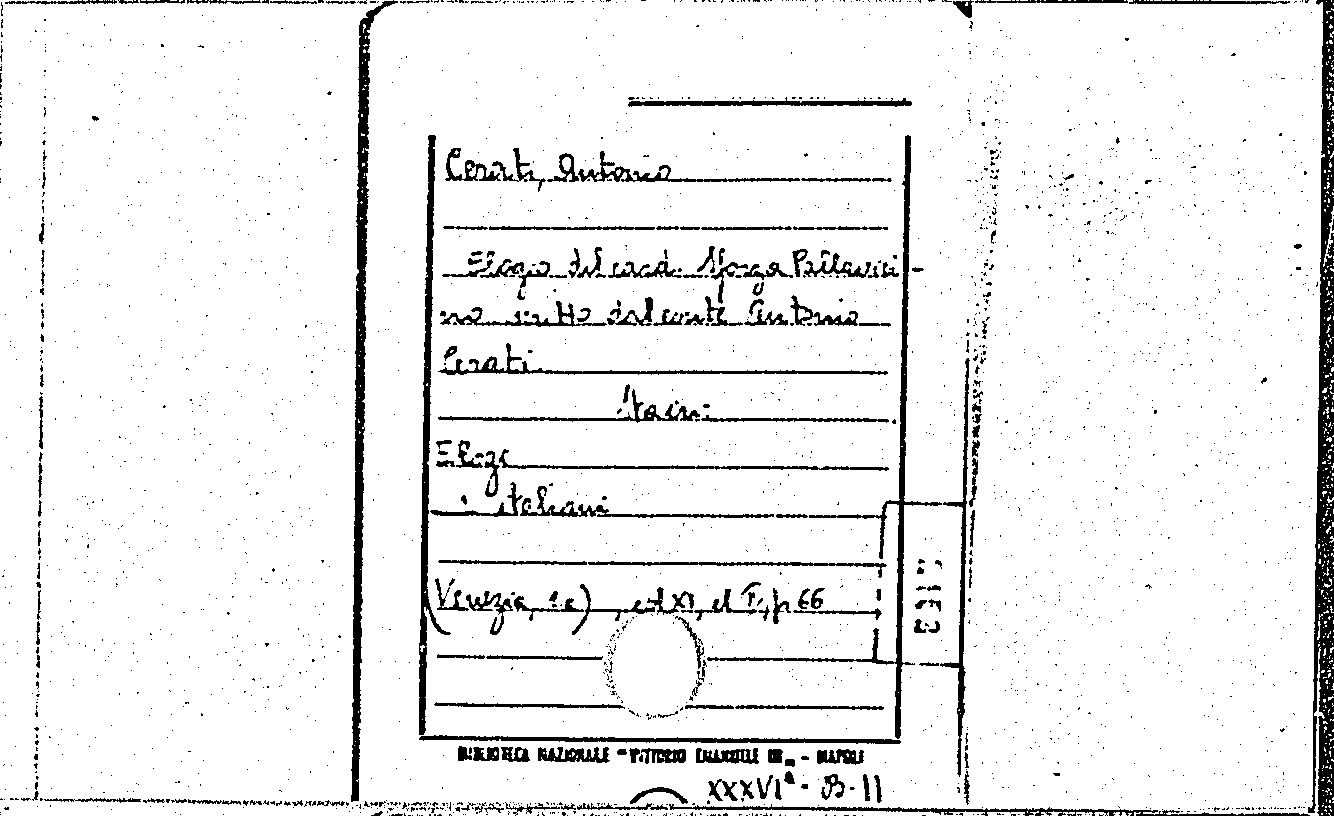 Cerati, Antonio
Elogio del card. Sforza Pallavici-
no scritto dal conte Antonio
Cerati.
Elogi
italiani
(Venezia, s.a), p. 66
BIBLIOTECA NAZIONALE - VITTORIO EMANUELE III - NAPOLI
XXXVIª - B - 11